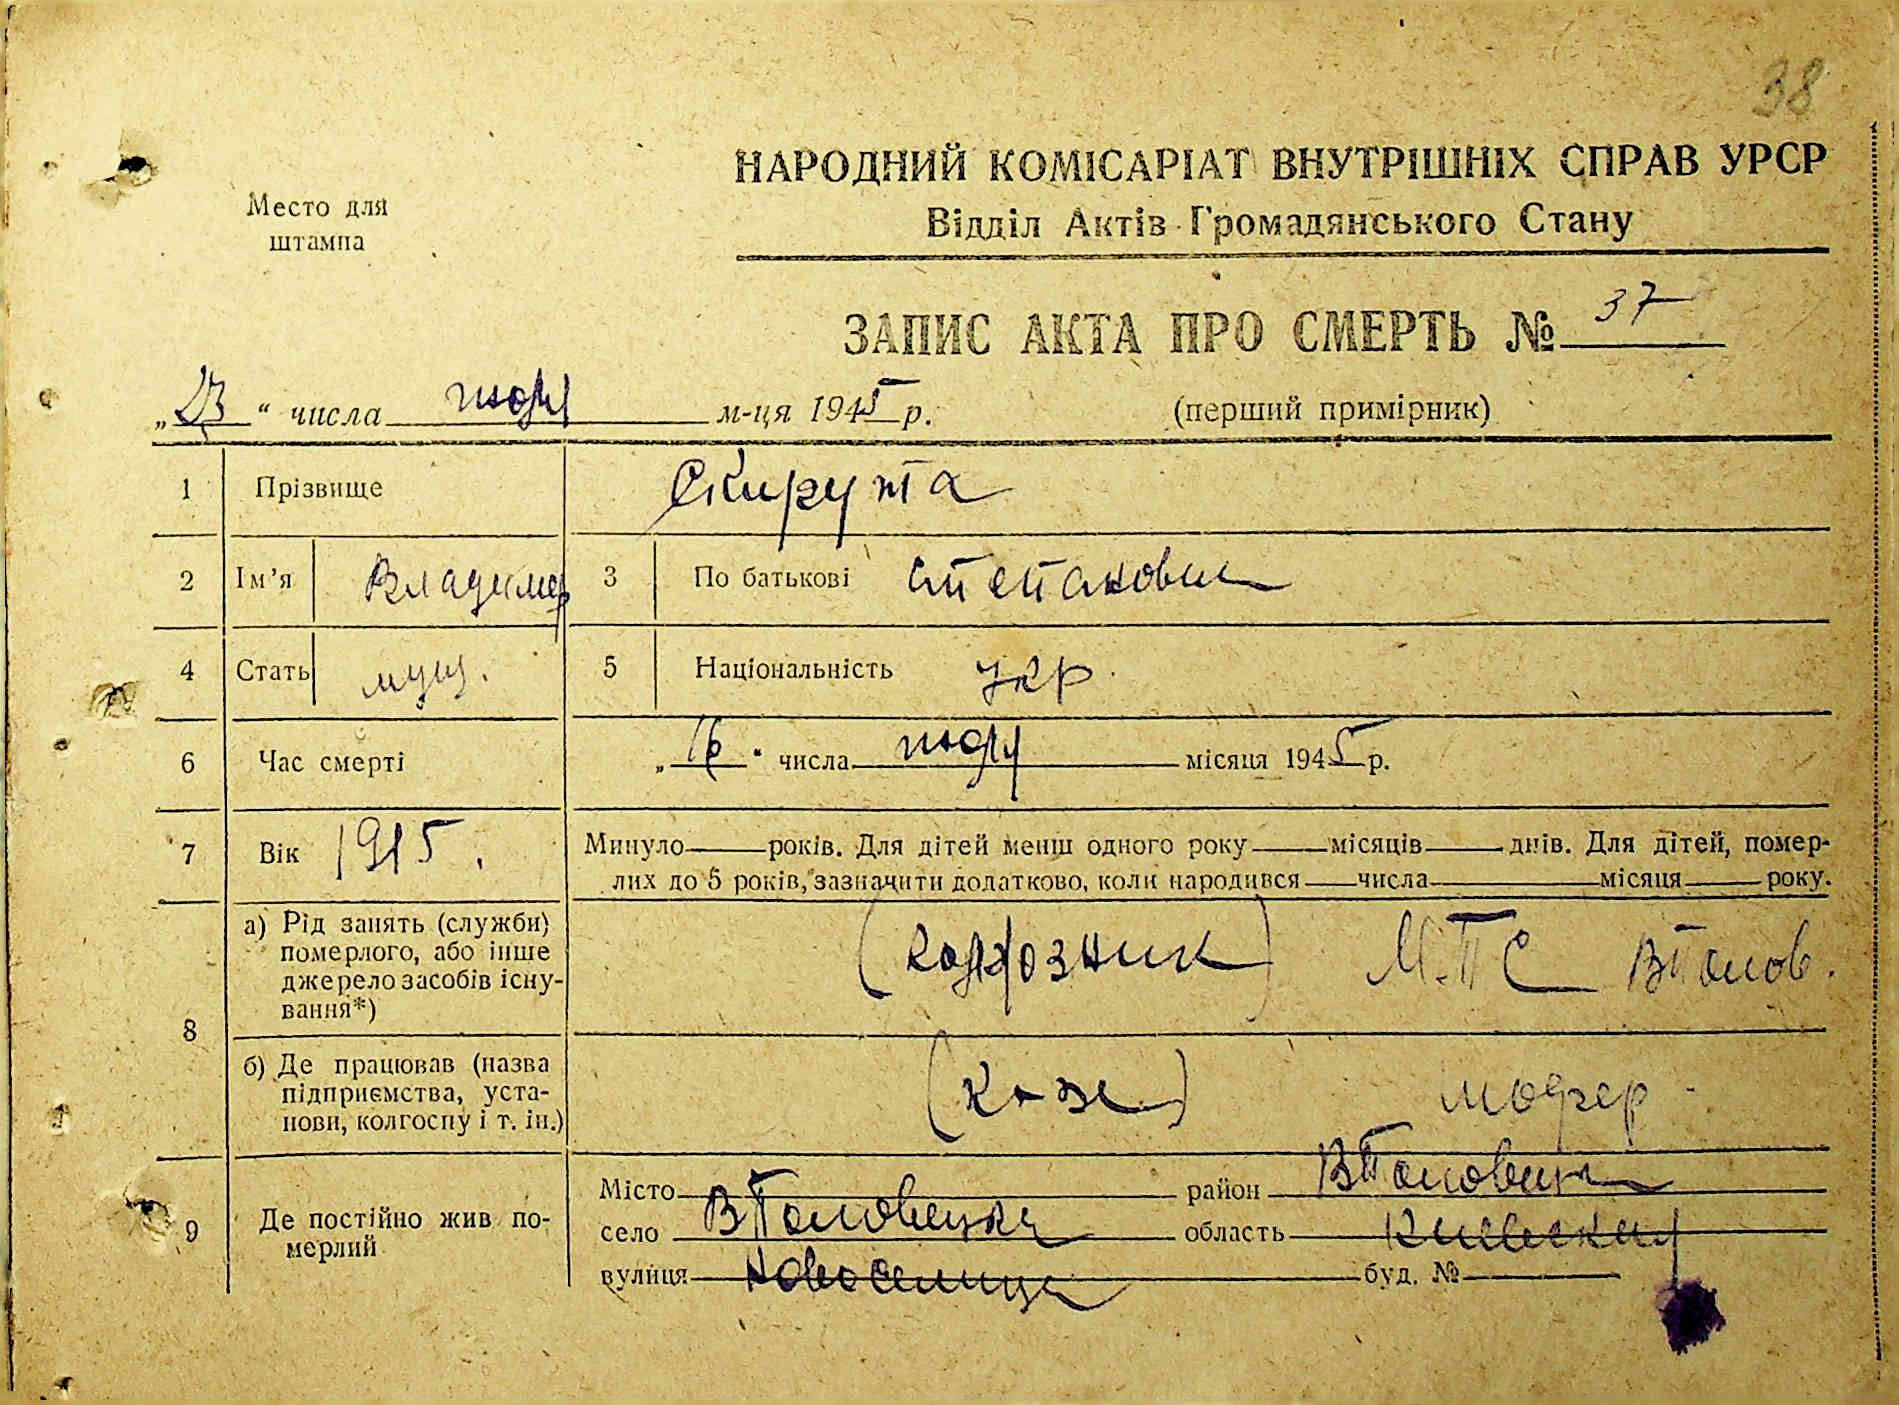 38
НАРОДНИЙ КОМІСАРІАТ ВНУТРІШНІХ СПРАВ УРСР
Место для штампа
Відділ Актів Громадянського Стану
ЗАПИС АКТА ПРО СМЕРТЬ № 37
„23“ числа июля м-ця 1945 р. (перший примірник)
1 Прізвище Скирута
2 Ім’я Владимир 3 По батькові Степанович
4 Стать мущ. 5 Національність укр.
6 Час смерті „16“ числа июля місяця 1945 р.
7 Вік 1915. Минуло років. Для дітей менш одного року місяців днів. Для дітей, помер-
лих до 5 років, зазначити додатково, коли народився числа місяця року.
8 а) Рід занять (служби) (колхозник) М.Т.С. ВПолов.
померлого, або інше
джерело засобів існу-
вання*)
б) Де працював (назва
підприємства, уста-
нови, колгоспу і т. ін.)
9 Де постійно жив по-
мерлий
Місто район ВПоловецкий
село ВПоловецка область Киевская
вулиця Новоселица буд. №